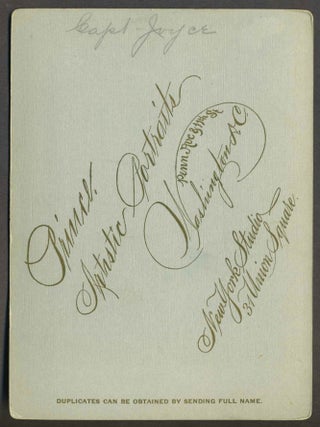 Capt Joyce
Prince.
Artistic Portraits
Penn. Ave & 11th St
Washington D.C.
New York Studio
31 Union Square.
DUPLICATES CAN BE OBTAINED BY SENDING FULL NAME.